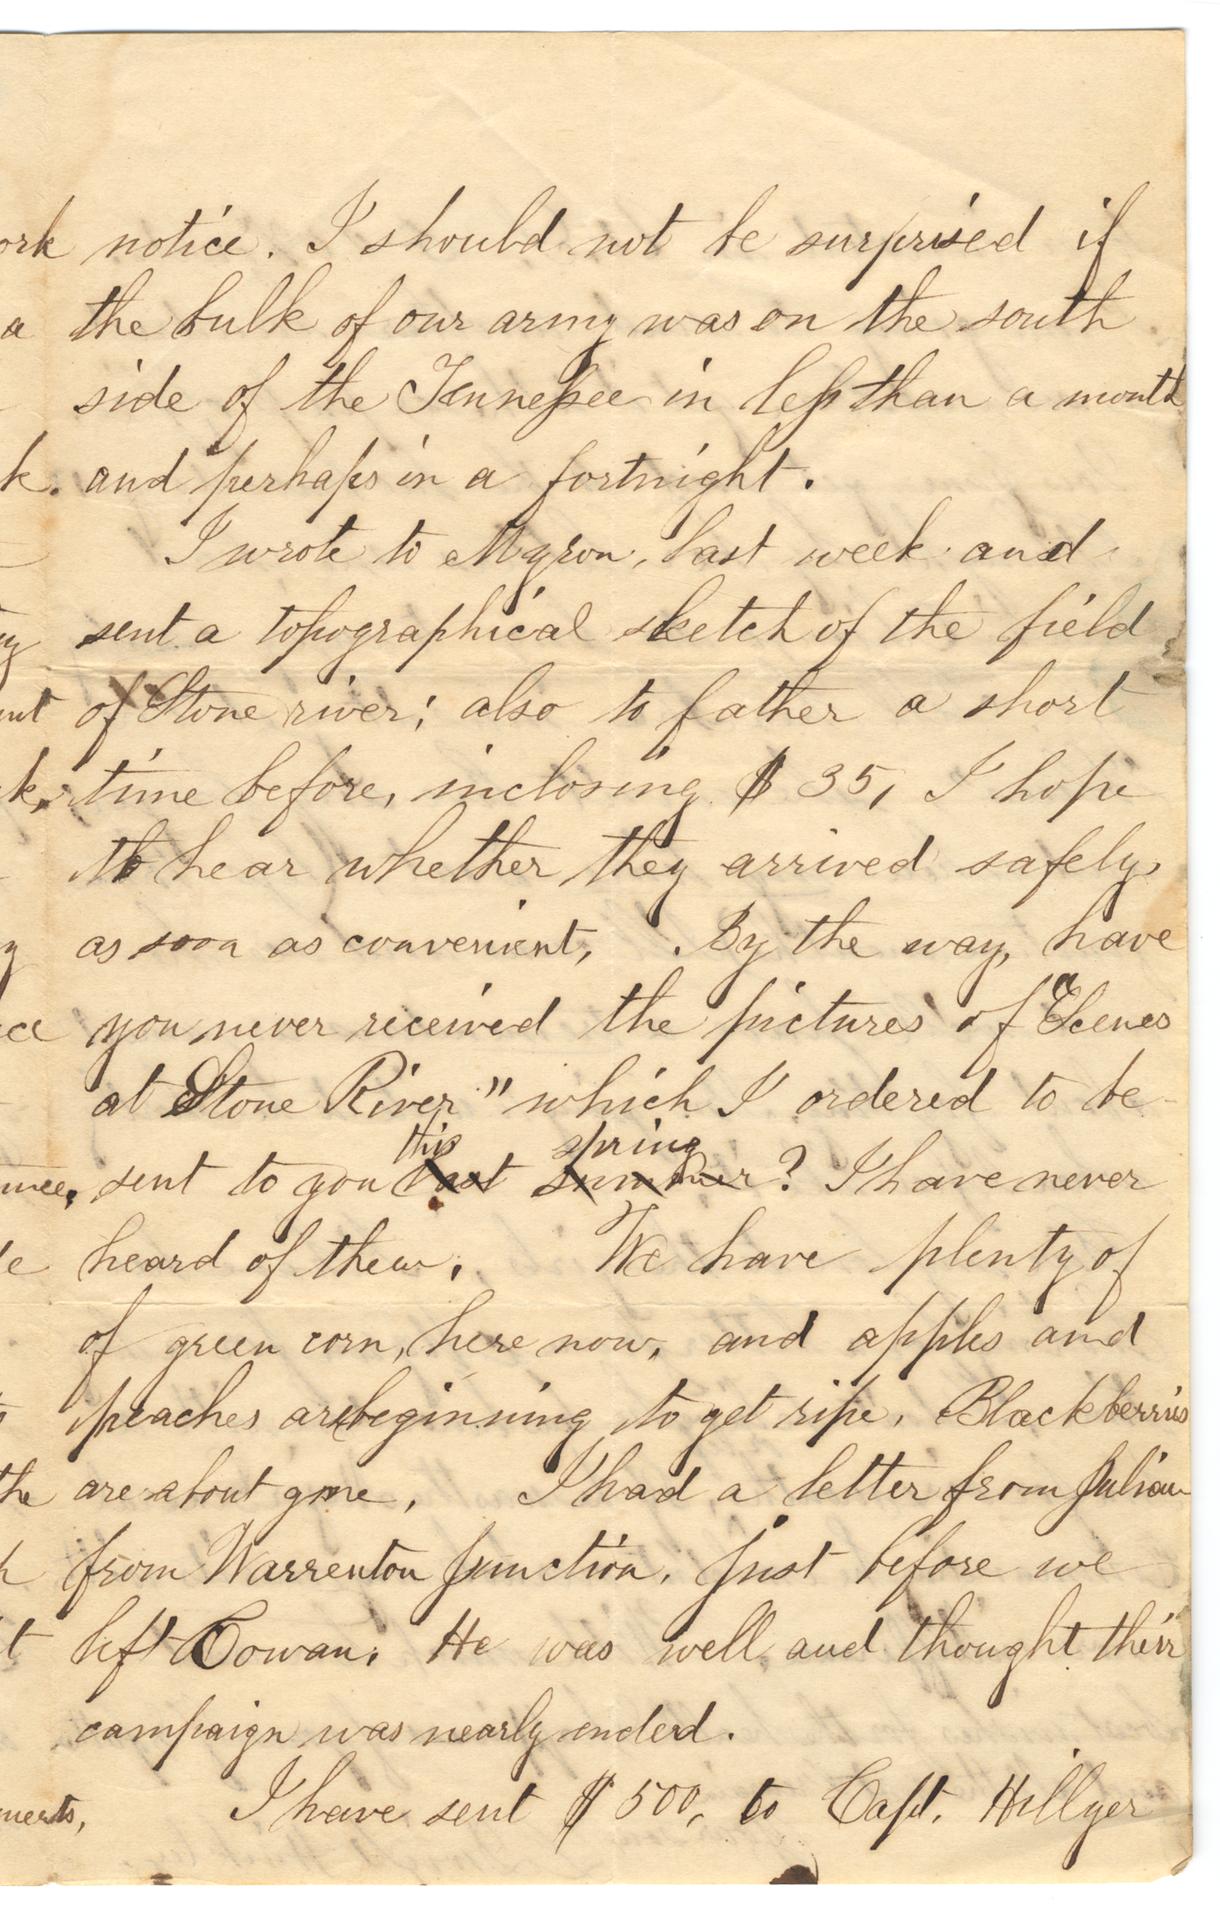 ork notice. I should not be surprised if
a the bulk of our army was on the south
side of the Tennessee in less than a month
k. and perhaps in a fortnight.
I wrote to Myron, last week and
sent a topographical sketch of the field
of Stone river; also to father a short
k, time before, inclosing $35, I hope
to hear whether they arrived safely,
as soon as convenient, By the way, have
you never received the pictures of "Scenes
at Stone River" which I ordered to be
this spring
sent to you last summer? I have never
heard of them. We have plenty of
of green corn, here now, and apples and
peaches are beginning to get ripe. Blackberries
the are about gone, I had a letter from Julian
from Warrenton Junction, Just before we
t left Cowan. He was well and thought their
campaign was nearly ended.
ments, I have sent $500, to Capt. Hillyer